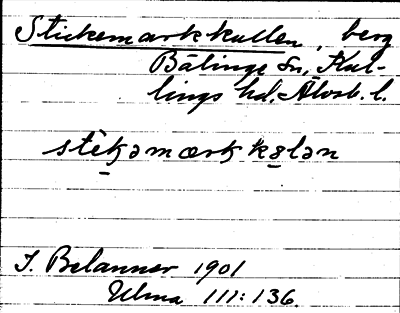 Stickemarkkullen, berg
Bälinge sn, Kul-
lings hd, Älvsb. l.
stèk̬əmærk kɷlən
I. Belanner 1901
Ulma 111:136.